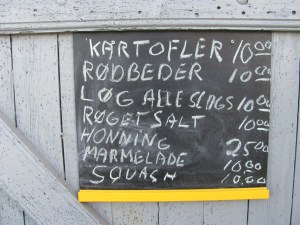 KARTOFLER 10.00
RØDBEDER 10.00
LØG ALLESLAGS 10.00
RØGET SALT 10.00
HONNING 25.00
MARMELADE 10.00
SQUASH 10.00